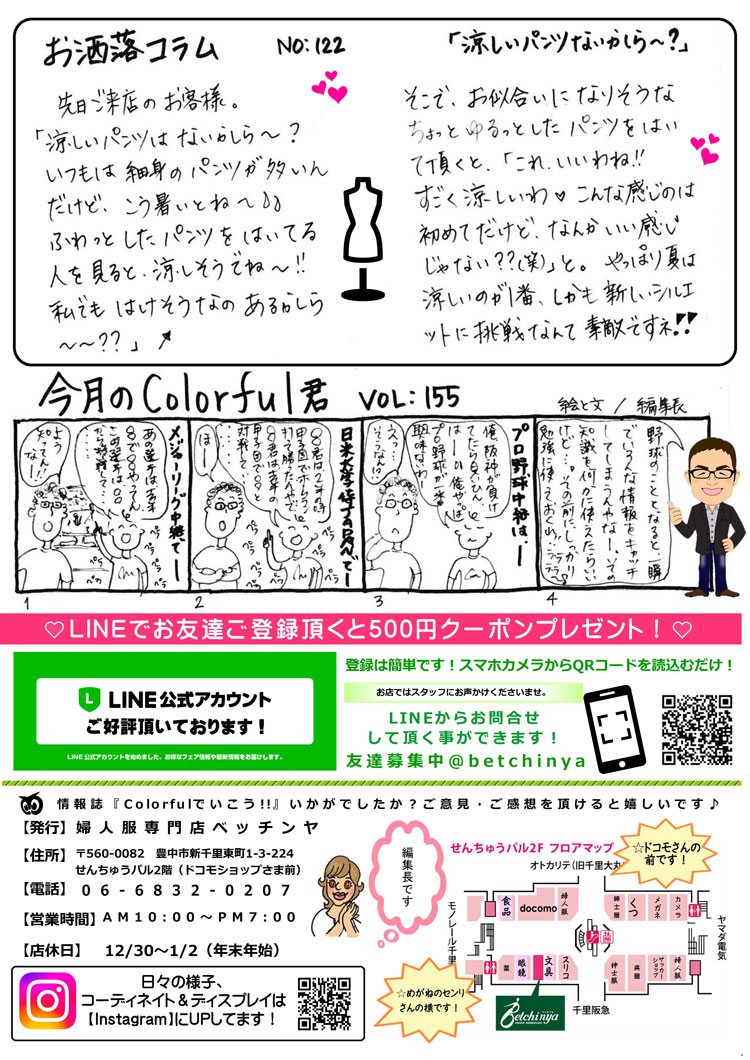 お洒落コラム NO:122 「涼しいパンツないかしら〜?」
先日ご来店のお客様。
「涼しいパンツはないかしら〜?
いつもは細身のパンツが多いん
だけど、こう暑いとね〜♪♪
ふわっとしたパンツをはいてる
人を見ると、涼しそうでね〜!!
私でもはけそうなのあるかしら
〜〜??」
そこで、お似合いになりそうな
ちょっとゆるっとしたパンツをはい
て頂くと、「これ、いいわね!!
すごく涼しいわ♥こんな感じのは
初めてだけど、なんかいい感じ
じゃない??(笑)」と。やっぱり夏は
涼しいのが1番、しかも新しいシルエ
ットに挑戦なんて素敵ですネ!!
今月のColorful君 VOL:155 絵と文/編集長
メジャーリーグ中継で
あの選手はあそ
この選手は○○
よう
知ってん
なー!
ペラ
ペラ
ペラ
1
日米大学
○○君は2年の時
甲子園でホームラン
打って勝ったんやで
○○君は去年の
甲子園で○○と
対戦して
はー
ペラ
ペラ
ペラ
2
プロ野球中継は…
俺、阪神が負け
てたら見いひん
プロ野球が一番
興味ない
3
野球のこととなると一瞬
でいろんな情報をキャッチ
してしまうんやなー、その
知識も何かに使えたらいい
けど…。その前にしっかり
勉強に使えておくれ。
4
♡LINEでお友達ご登録頂くと500円クーポンプレゼント!♡
LINE公式アカウント
ご好評頂いております!
LINE公式アカウントを始めました。お得なフェア情報や最新情報をお届けします。
登録は簡単です!スマホカメラからQRコードを読込むだけ!
お店ではスタッフにお声かけくださいませ。
LINEからお問合せ
して頂く事ができます!
友達募集中@betchinya
情報誌『Colorfulでいこう!!』いかがでしたか?ご意見・ご感想を頂けると嬉しいです♪
【発行】婦人服専門店ベッチンヤ
【住所】〒560-0082 豊中市新千里東町1-3-224
せんちゅうパル2階(ドコモショップさま前)
【電話】06-6832-0207
【営業時間】AM10:00〜PM7:00
【店休日】 12/30〜1/2(年末年始)
日々の様子、
コーディネイト&ディスプレイは
【Instagram】にUPしてます!
編集長です
せんちゅうパル2F フロアマップ
☆ドコモさんの
前です!
オトカリテ(旧千里大丸
モノレール千里
ヤマダ電気
食品
docomo
婦人服
紳士服
くつ
メガネ
カメラ
薬
眼鏡
文具
スリコ
紳士服
呉服
サッカーショップ
婦人服
☆めがねのセンリ
さんの横です!
Betchinya
千里阪急